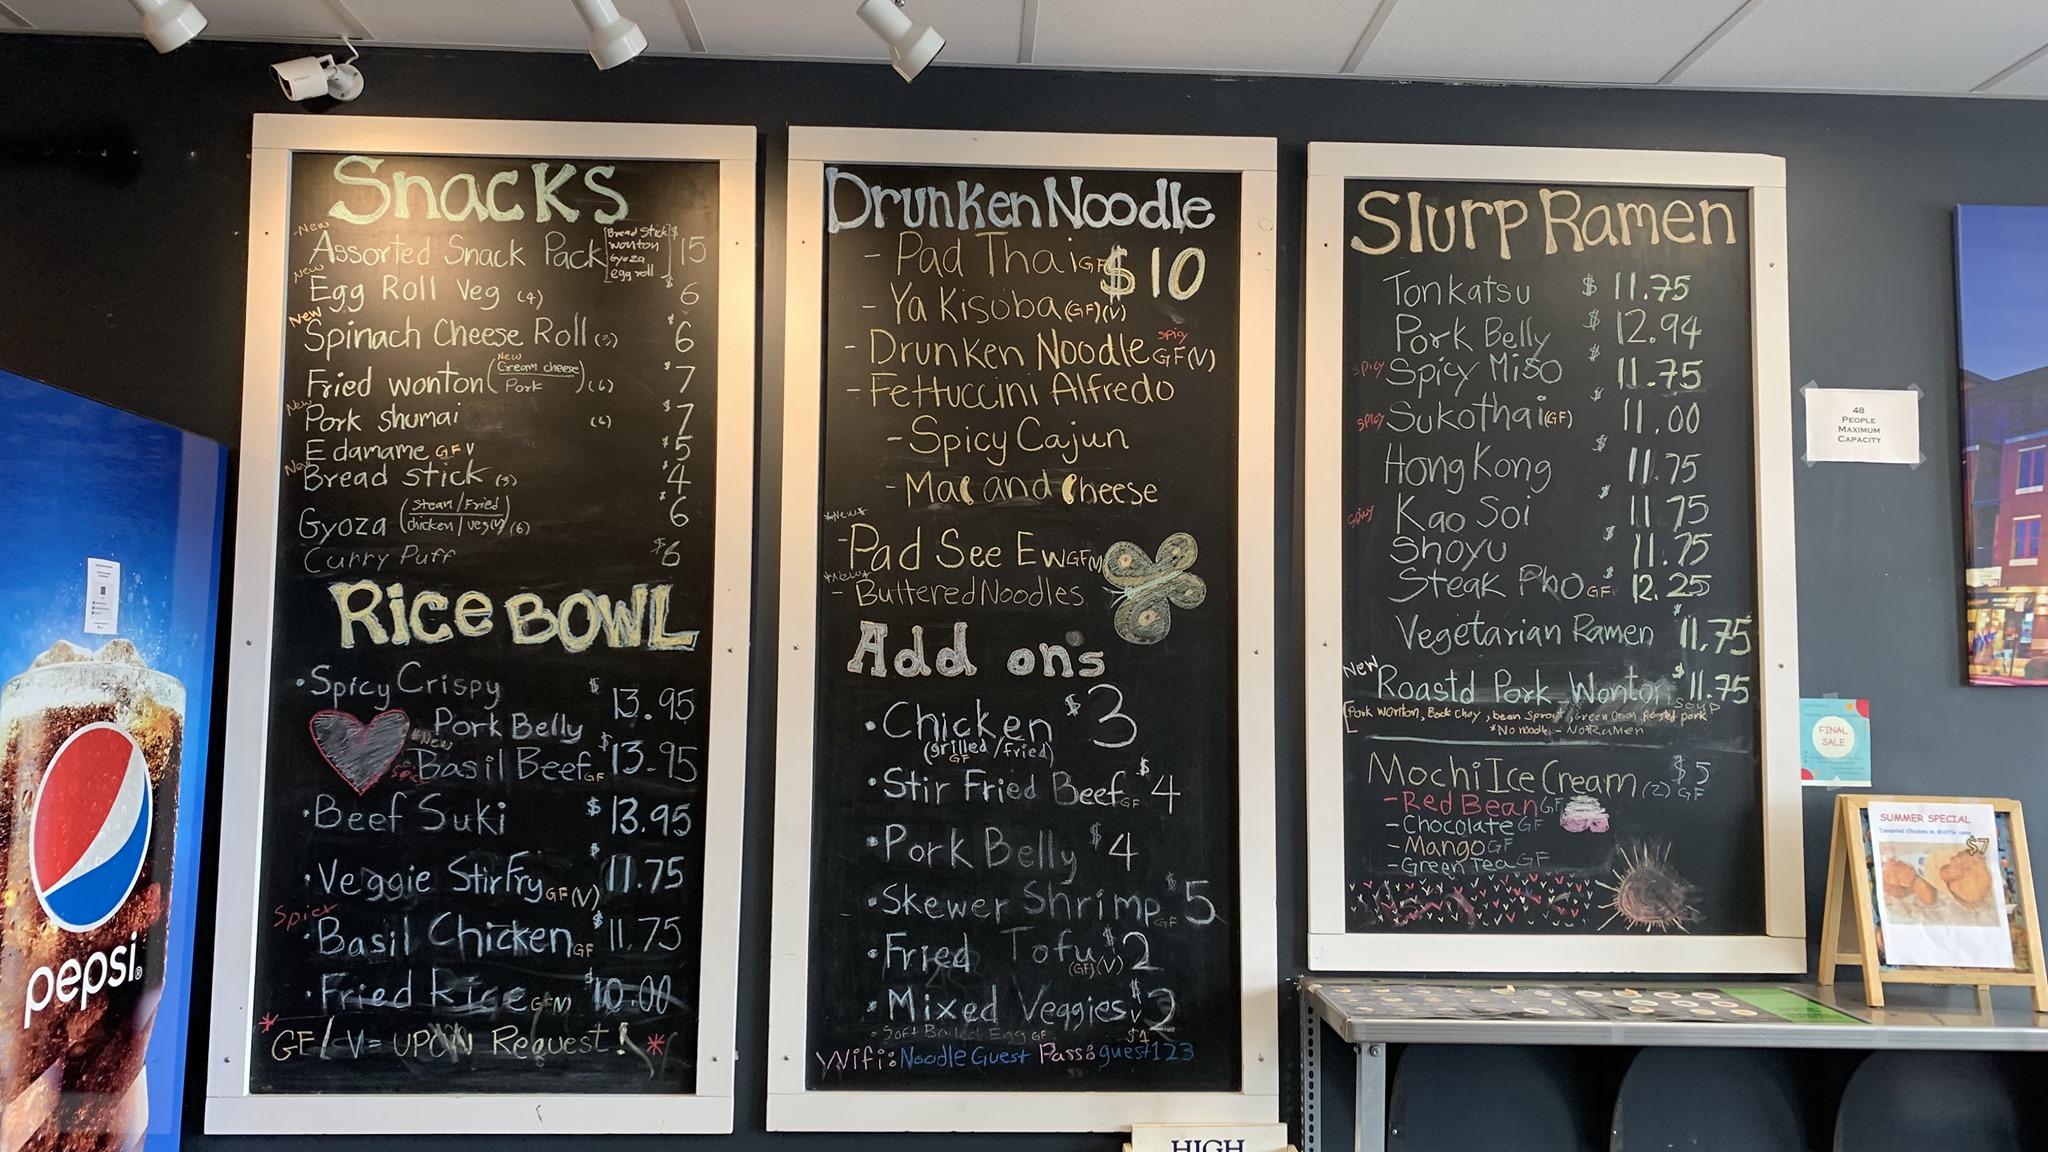 Snacks
New
Assorted Snack Pack [Bread Stick wonton Gyoza egg roll] $15
New
Egg Roll Veg (4) $6
New
Spinach Cheese Roll (3) $6
Fried wonton (New Cream cheese / Pork) (6) $7
New
Pork Shumai (6) $7
Edamame GF V $5
New
Bread stick (5) $4
Gyoza (Steam/Fried chicken/veg(V)) (6) $6
Curry Puff $6
Rice BOWL
• Spicy Crispy Pork Belly $13.95
New
Basil Beef GF $13.95
• Beef Suki $13.95
• Veggie Stir Fry GF (V) $11.75
Spicy
• Basil Chicken GF $11.75
• Fried Rice GF(V) $10.00
* GF/V = UPON Request! *
Drunken Noodle
- Pad Thai GF $10
- Ya Kisoba (GF)(V)
- Drunken Noodle spicy GF(V)
- Fettuccini Alfredo
- Spicy Cajun
- Mac and Cheese
*New*
- Pad See Ew GF(V)
*New*
- Buttered Noodles
Add on's
• Chicken $3
(grilled GF / fried)
• Stir Fried Beef GF $4
• Pork Belly $4
• Skewer Shrimp GF $5
• Fried Tofu (GF)(V) $2
• Mixed Veggies V $2
• Soft Boiled Egg GF $1
Wifi: Noodle Guest Pass: guest123
Slurp Ramen
Tonkatsu $11.75
Pork Belly $12.94
spicy Spicy Miso $11.75
spicy Sukothai (GF) $11.00
Hong Kong $11.75
spicy Kao Soi $11.75
Shoyu $11.75
Steak Pho GF $12.25
Vegetarian Ramen $11.75
New
Roastd Pork Wonton Soup $11.75
[Pork wonton, Bock Choy, bean Sprout, Green Onion, Roasted pork
*No noodle - Not Ramen
Mochi Ice Cream (2) GF $5
- Red Bean GF
- Chocolate GF
- Mango GF
- Green Tea GF
48
PEOPLE
MAXIMUM
CAPACITY
FINAL
SALE
SUMMER SPECIAL
$7
pepsi
HIGH